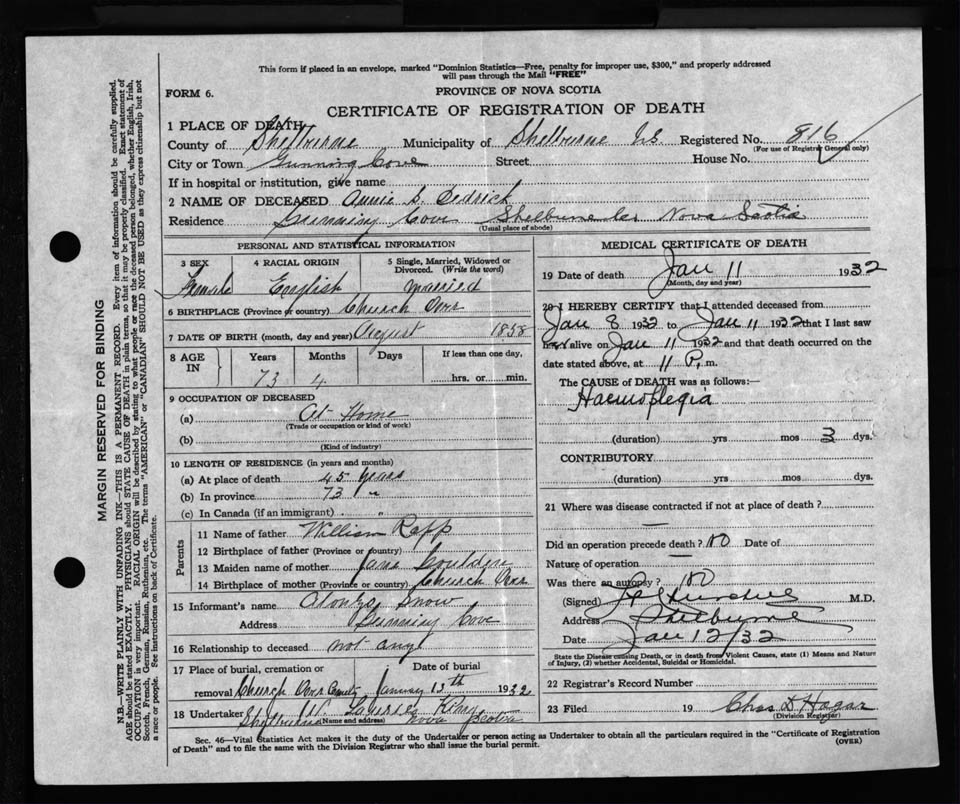 This form if placed in an envelope, marked "Dominion Statistics—Free, penalty for improper use, $300," and properly addressed
will pass through the Mail "FREE"
FORM 6.
PROVINCE OF NOVA SCOTIA
CERTIFICATE OF REGISTRATION OF DEATH
1 PLACE OF DEATH
County of Shelburne Municipality of Shelburne Registered No. 816
(For use of Registrar General only)
City or Town Gunning Cove Street House No.
If in hospital or institution, give name
2 NAME OF DECEASED Annie S. Dedrick
Residence Gunning Cove Shelburne Co Nova Scotia
(Usual place of abode)
PERSONAL AND STATISTICAL INFORMATION
3 SEX 4 RACIAL ORIGIN 5 Single, Married, Widowed or Divorced. (Write the word)
Female English married
6 BIRTHPLACE (Province or country) Church Over
7 DATE OF BIRTH (month, day and year) August 1858
8 AGE IN Years Months Days If less than one day,
73 4 hrs. or min.
9 OCCUPATION OF DECEASED
(a) At Home
(Trade or occupation or kind of work)
(b)
(Kind of industry)
10 LENGTH OF RESIDENCE (in years and months)
(a) At place of death 45 years
(b) In province 73 "
(c) In Canada (if an immigrant) "
Parents
11 Name of father William Rapp
12 Birthplace of father (Province or country)
13 Maiden name of mother Jane Goulden
14 Birthplace of mother (Province or country) Church Over
15 Informant's name Alonzo Snow
Address Gunning Cove
16 Relationship to deceased not any
17 Place of burial, cremation or Date of burial
removal Church Over January 13th 1932
18 Undertaker
(Name and address) Shelburne Nova Scotia
MEDICAL CERTIFICATE OF DEATH
19 Date of death Jan 11 1932
(Month, day and year)
20 I HEREBY CERTIFY that I attended deceased from
Jan 8 1932 to Jan 11 1932 that I last saw
alive on Jan 11 1932 and that death occurred on the
date stated above, at 11 P. m.
The CAUSE of DEATH was as follows:
Haemoplegia
(duration) yrs mos 3 dys.
CONTRIBUTORY
(duration) yrs mos dys.
21 Where was disease contracted if not at place of death? —
Did an operation precede death? no Date of
Nature of operation —
Was there an autopsy? no
(Signed) M.D.
Address Shelburne
Date Jan 12/32
State the Disease causing Death, or in death from Violent Causes, state (1) Means and Nature
of Injury, (2) whether Accidental, Suicidal or Homicidal.
22 Registrar's Record Number
23 Filed 19 Chas D Hagar
(Division Registrar)
Sec. 46—Vital Statistics Act makes it the duty of the Undertaker or person acting as Undertaker to obtain all the particulars required in the "Certificate of Registration
of Death" and to file the same with the Division Registrar who shall issue the burial permit.
(OVER)
MARGIN RESERVED FOR BINDING
N.B.—WRITE PLAINLY WITH UNFADING INK—THIS IS A PERMANENT RECORD. Every item of information should be carefully supplied.
AGE should be stated EXACTLY. PHYSICIANS should STATE CAUSE OF DEATH in plain terms, so that it may be properly classified. Exact statement of
OCCUPATION is very important. RACIAL ORIGIN will be described by stating to what people or race the deceased person belonged, whether English, Irish,
Scotch, French, German, Russian, Ruthenian, etc. The terms "AMERICAN" or "CANADIAN" SHOULD NOT BE USED as they express citizenship but not
a race or people. See instructions on back of Certificate.